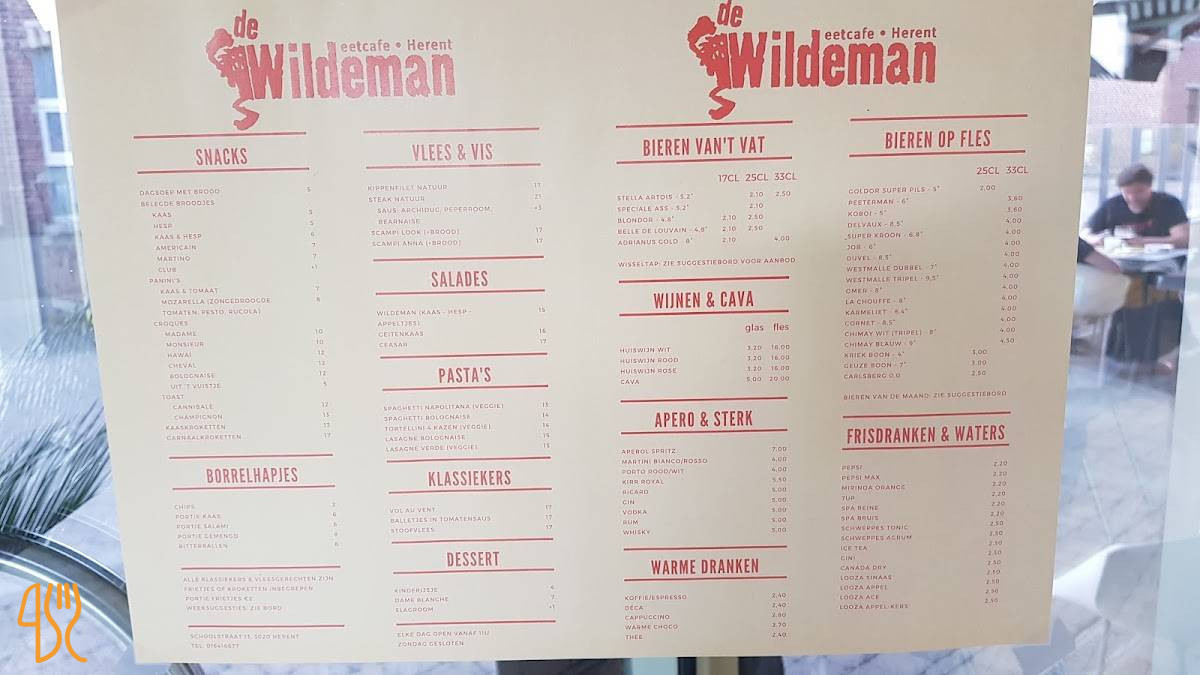 de
Wildeman
eetcafe • Herent
SNACKS
DAGSOEP MET BROOD 5
BELEGDE BROODJES
KAAS 5
HESP 5
KAAS & HESP 6
AMERICAIN 7
MARTINO 7
CLUB +1
PANINI'S
KAAS & TOMAAT 7
MOZARELLA (ZONGEDROOGDE 8
TOMATEN, PESTO, RUCOLA)
CROQUES
MADAME 10
MONSIEUR 10
HAWAI 12
CHEVAL 12
BOLOGNAISE 12
UIT 'T VUISTJE 5
TOAST
CANNIBALE 12
CHAMPIGNON 13
KAASKROKETTEN 13
GARNAALKROKETTEN 17
BORRELHAPJES
CHIPS 2
PORTIE KAAS 6
PORTIE SALAMI 6
PORTIE GEMENGD 8
BITTERBALLEN 8
ALLE KLASSIEKERS & VLEESGERECHTEN ZIJN
FRIETJES OF KROKETTEN INBEGREPEN
PORTIE FRIETJES €2
WEEKSUGGESTIES: ZIE BORD
SCHOOLSTRAAT 13, 3020 HERENT
TEL: 016416677
VLEES & VIS
KIPPENFILET NATUUR 17
STEAK NATUUR 21
SAUS: ARCHIDUC, PEPERROOM, +3
BEARNAISE
SCAMPI LOOK (+BROOD) 17
SCAMPI ANNA (+BROOD) 17
SALADES
WILDEMAN (KAAS - HESP - 15
APPELTJES)
GEITENKAAS 16
CEASAR 17
PASTA'S
SPAGHETTI NAPOLITANA (VEGGIE) 13
SPAGHETTI BOLOGNAISE 14
TORTELLINI 4 KAZEN (VEGGIE) 14
LASAGNE BOLOGNAISE 15
LASAGNE VERDE (VEGGIE) 15
KLASSIEKERS
VOL AU VENT 17
BALLETJES IN TOMATENSAUS 17
STOOFVLEES 17
DESSERT
KINDERIJSJE 4
DAME BLANCHE 7
SLAGROOM +1
ELKE DAG OPEN VANAF 11U
ZONDAG GESLOTEN
de
Wildeman
eetcafe • Herent
BIEREN VAN'T VAT
17CL 25CL 33CL
STELLA ARTOIS - 5,2° 2,10 2,50
SPECIALE ASS - 5,2° 2,10
BLONDOR - 4,8° 2,10 2,50
BELLE DE LOUVAIN - 4,8° 2,10 2,50
ADRIANUS GOLD - 8° 2,10 4,00
WISSELTAP: ZIE SUGGESTIEBORD VOOR AANBOD
WIJNEN & CAVA
glas fles
HUISWIJN WIT 3,20 16,00
HUISWIJN ROOD 3,20 16,00
HUISWIJN ROSE 3,20 16,00
CAVA 5,00 20,00
APERO & STERK
APEROL SPRITZ 7,00
MARTINI BIANCO/ROSSO 4,00
PORTO ROOD/WIT 4,00
KIRR ROYAL 5,50
RICARD 5,00
GIN 5,00
VODKA 5,00
RUM 5,00
WHISKY 5,00
WARME DRANKEN
KOFFIE/ESPRESSO 2,40
DÉCA 2,40
CAPPUCCINO 2,80
WARME CHOCO 2,70
THEE 2,40
BIEREN OP FLES
25CL 33CL
GOLDOR SUPER PILS - 5° 2,00
PEETERMAN - 6° 3,60
KOBOI - 5° 3,60
DELVAUX - 8,5° 4,00
SUPER KROON - 6,8° 4,00
JOB - 6° 4,00
DUVEL - 8,5° 4,00
WESTMALLE DUBBEL - 7° 4,00
WESTMALLE TRIPEL - 9,5° 4,00
OMER - 8° 4,00
LA CHOUFFE - 8° 4,00
KARMELIET - 8,4° 4,00
CORNET - 8,5° 4,00
CHIMAY WIT (TRIPEL) - 8° 4,00
CHIMAY BLAUW - 9° 4,50
KRIEK BOON - 4° 3,00
GEUZE BOON - 7° 3,00
CARLSBERG 0,0 2,50
BIEREN VAN DE MAAND: ZIE SUGGESTIEBORD
FRISDRANKEN & WATERS
PEPSI 2,20
PEPSI MAX 2,20
MIRINDA ORANGE 2,20
7UP 2,20
SPA REINE 2,20
SPA BRUIS 2,20
SCHWEPPES TONIC 2,50
SCHWEPPES AGRUM 2,50
ICE TEA 2,50
GINI 2,50
CANADA DRY 2,50
LOOZA SINAAS 2,50
LOOZA APPEL 2,50
LOOZA ACE 2,50
LOOZA APPEL-KERS 2,50